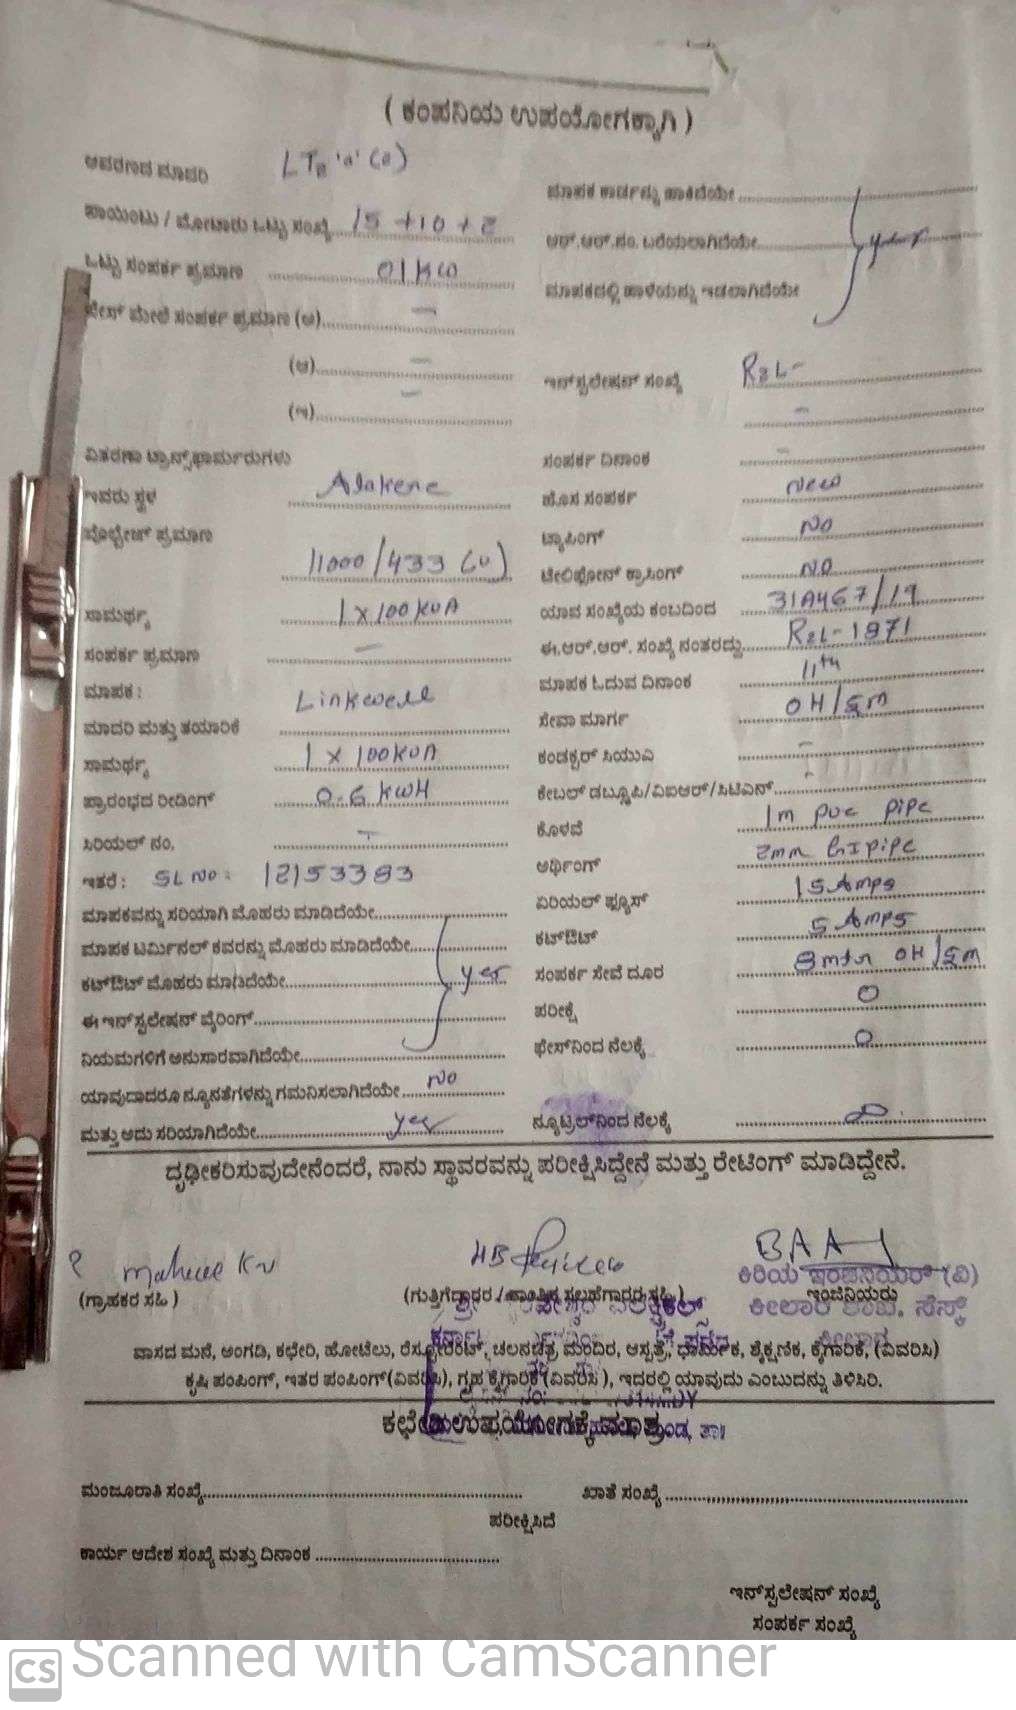 ( ಕಂಪನಿಯ ಉಪಯೋಗಕ್ಕಾಗಿ )
ಆವರಣದ ಮಾದರಿ
ಮಾಪಕ ಕಾರ್ಡನ್ನು ಹಾಕಿದೆಯೇ
ಪಾಯಿಂಟು / ಮೋಟಾರು ಒಟ್ಟು ಸಂಖ್ಯೆ 15 +10 + 2
ಆರ್.ಆರ್.ನಂ. ಬರೆಯಲಾಗಿದೆಯೇ
ಒಟ್ಟು ಸಂಪರ್ಕ ಪ್ರಮಾಣ 01 KW
ಮಾಪಕದಲ್ಲಿ ಹಾಳೆಯನ್ನು ಇಡಲಾಗಿದೆಯೇ
ಫೇಸ್ ಮೇಲೆ ಸಂಪರ್ಕ ಪ್ರಮಾಣ (ಅ) –
(ಆ) –
ಇನ್‌ಸ್ಟಲೇಷನ್ ಸಂಖ್ಯೆ
(ಇ) –
ವಿತರಣಾ ಟ್ರಾನ್ಸ್‌ಫಾರ್ಮರುಗಳು
ಸಂಪರ್ಕ ದಿನಾಂಕ –
ಇವರು ಸ್ಥಳ
ಹೊಸ ಸಂಪರ್ಕ New
ವೋಲ್ಟೇಜ್ ಪ್ರಮಾಣ 11000/433 (v)
ಟ್ಯಾಪಿಂಗ್ No
ಟೇಲಿಫೋನ್ ಕ್ರಾಸಿಂಗ್ NO
ಸಾಮರ್ಥ್ಯ 1 x 100 KVA
ಯಾವ ಸಂಖ್ಯೆಯ ಕಂಬದಿಂದ 31A467/19
ಸಂಪರ್ಕ ಪ್ರಮಾಣ –
ಈ.ಆರ್.ಆರ್. ಸಂಖ್ಯೆ ನಂತರದ್ದು
ಮಾಪಕ :
ಮಾಪಕ ಓದುವ ದಿನಾಂಕ 11th
ಮಾದರಿ ಮತ್ತು ತಯಾರಿಕೆ Linkwell
ಸೇವಾ ಮಾರ್ಗ
ಸಾಮರ್ಥ್ಯ 1 x 100 KVA
ಕಂಡಕ್ಟರ್ ಸಿಯುವಿ –
ಪ್ರಾರಂಭದ ರೀಡಿಂಗ್ 0.6 KWH
ಕೇಬಲ್ ಡಬ್ಲೂಪಿ/ವಿಐಆರ್/ಸಿಟಿಎಸ್
ಸಿರಿಯಲ್ ನಂ. –
ಕೊಳವೆ 1m PVC PIPE
ಇತರೆ : SL NO: 12153383
ಅರ್ಥಿಂಗ್ 2mm GI PIPE
ಏರಿಯಲ್ ಫ್ಯೂಸ್ 15 Amps
ಮಾಪಕವನ್ನು ಸರಿಯಾಗಿ ಮೊಹರು ಮಾಡಿದೆಯೇ
ಕಟ್‌ಔಟ್ 5 AMPS
ಮಾಪಕ ಟರ್ಮಿನಲ್ ಕವರನ್ನು ಮೊಹರು ಮಾಡಿದೆಯೇ
ಕಟ್‌ಔಟ್ ಮೊಹರು ಮಾಡಿದೆಯೇ yes
ಸಂಪರ್ಕ ಸೇವೆ ದೂರ
ಈ ಇನ್‌ಸ್ಟಲೇಷನ್ ವೈರಿಂಗ್
ಪರೀಕ್ಷೆ 0
ನಿಯಮಗಳಿಗೆ ಅನುಸಾರವಾಗಿದೆಯೇ
ಫೇಸ್‌ನಿಂದ ನೆಲಕ್ಕೆ 0
ಯಾವುದಾದರೂ ನ್ಯೂನತೆಗಳನ್ನು ಗಮನಿಸಲಾಗಿದೆಯೇ No
ಮತ್ತು ಅದು ಸರಿಯಾಗಿದೆಯೇ yes
ನ್ಯೂಟ್ರಲ್‌ನಿಂದ ನೆಲಕ್ಕೆ
ದೃಢೀಕರಿಸುವುದೇನೆಂದರೆ, ನಾನು ಸ್ಥಾವರವನ್ನು ಪರೀಕ್ಷಿಸಿದ್ದೇನೆ ಮತ್ತು ರೇಟಿಂಗ್ ಮಾಡಿದ್ದೇನೆ.
ಕಿರಿಯ ಇಂಜಿನಿಯರ್ (ವಿ)
(ಗ್ರಾಹಕರ ಸಹಿ )
(ಗುತ್ತಿಗೆದಾರರ / ತಾಂತ್ರಿಕ ಸಲಹೆಗಾರರ ಸಹಿ )
ಇಂಜಿನಿಯರು
ಕೀಲಾರ ಶಾಖೆ, ಸೆಸ್ಕ್
ಕೀಲಾರ
ವಾಸದ ಮನೆ, ಅಂಗಡಿ, ಕಛೇರಿ, ಹೋಟೆಲು, ರೆಸ್ಟೋರೆಂಟ್, ಚಲನಚಿತ್ರ ಮಂದಿರ, ಆಸ್ಪತ್ರೆ, ಧಾರ್ಮಿಕ, ಶೈಕ್ಷಣಿಕ, ಕೈಗಾರಿಕೆ, (ವಿವರಿಸಿ)
ಕೃಷಿ ಪಂಪಿಂಗ್, ಇತರ ಪಂಪಿಂಗ್ (ವಿವರಿಸಿ), ಗೃಹ ಕೈಗಾರಿಕೆ (ವಿವರಿಸಿ ), ಇದರಲ್ಲಿ ಯಾವುದು ಎಂಬುದನ್ನು ತಿಳಿಸಿರಿ.
ಕಛೇರಿ ಉಪಯೋಗಕ್ಕೆ ಮಾತ್ರ
ಮಂಜೂರಾತಿ ಸಂಖ್ಯೆ
ಖಾತೆ ಸಂಖ್ಯೆ
ಪರೀಕ್ಷಿಸಿದೆ
ಕಾರ್ಯ ಆದೇಶ ಸಂಖ್ಯೆ ಮತ್ತು ದಿನಾಂಕ
ಇನ್‌ಸ್ಟಲೇಷನ್ ಸಂಖ್ಯೆ
ಸಂಪರ್ಕ ಸಂಖ್ಯೆ
CS Scanned with CamScanner